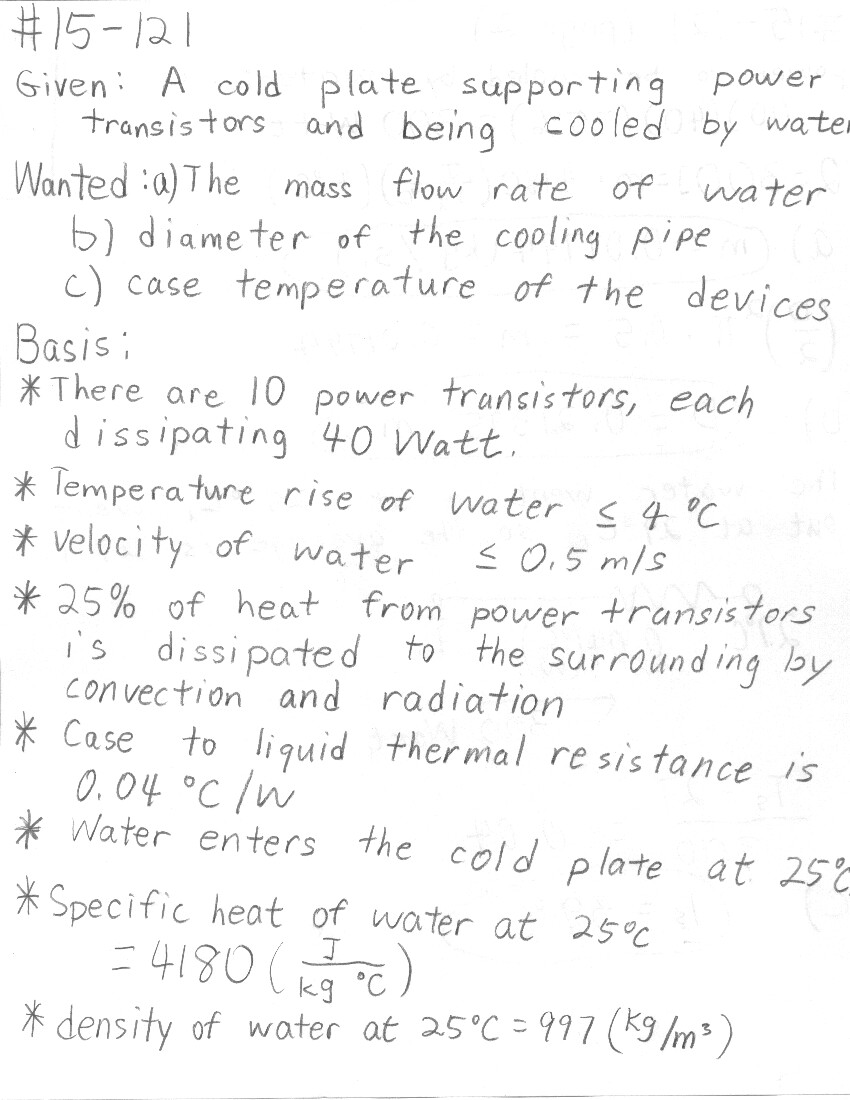 #15-121
Given: A cold plate supporting power
transistors and being cooled by water
Wanted: a) The mass flow rate of water
b) diameter of the cooling pipe
c) case temperature of the devices
Basis:
* There are 10 power transistors, each
dissipating 40 Watt.
* Temperature rise of water ≤ 4 °C
* velocity of water ≤ 0.5 m/s
* 25% of heat from power transistors
is dissipated to the surrounding by
convection and radiation
* Case to liquid thermal resistance is
0.04 °C/W
* Water enters the cold plate at 25°C
* Specific heat of water at 25°C
= 4180 (J/kg °C)
* density of water at 25°C = 997 (kg/m³)